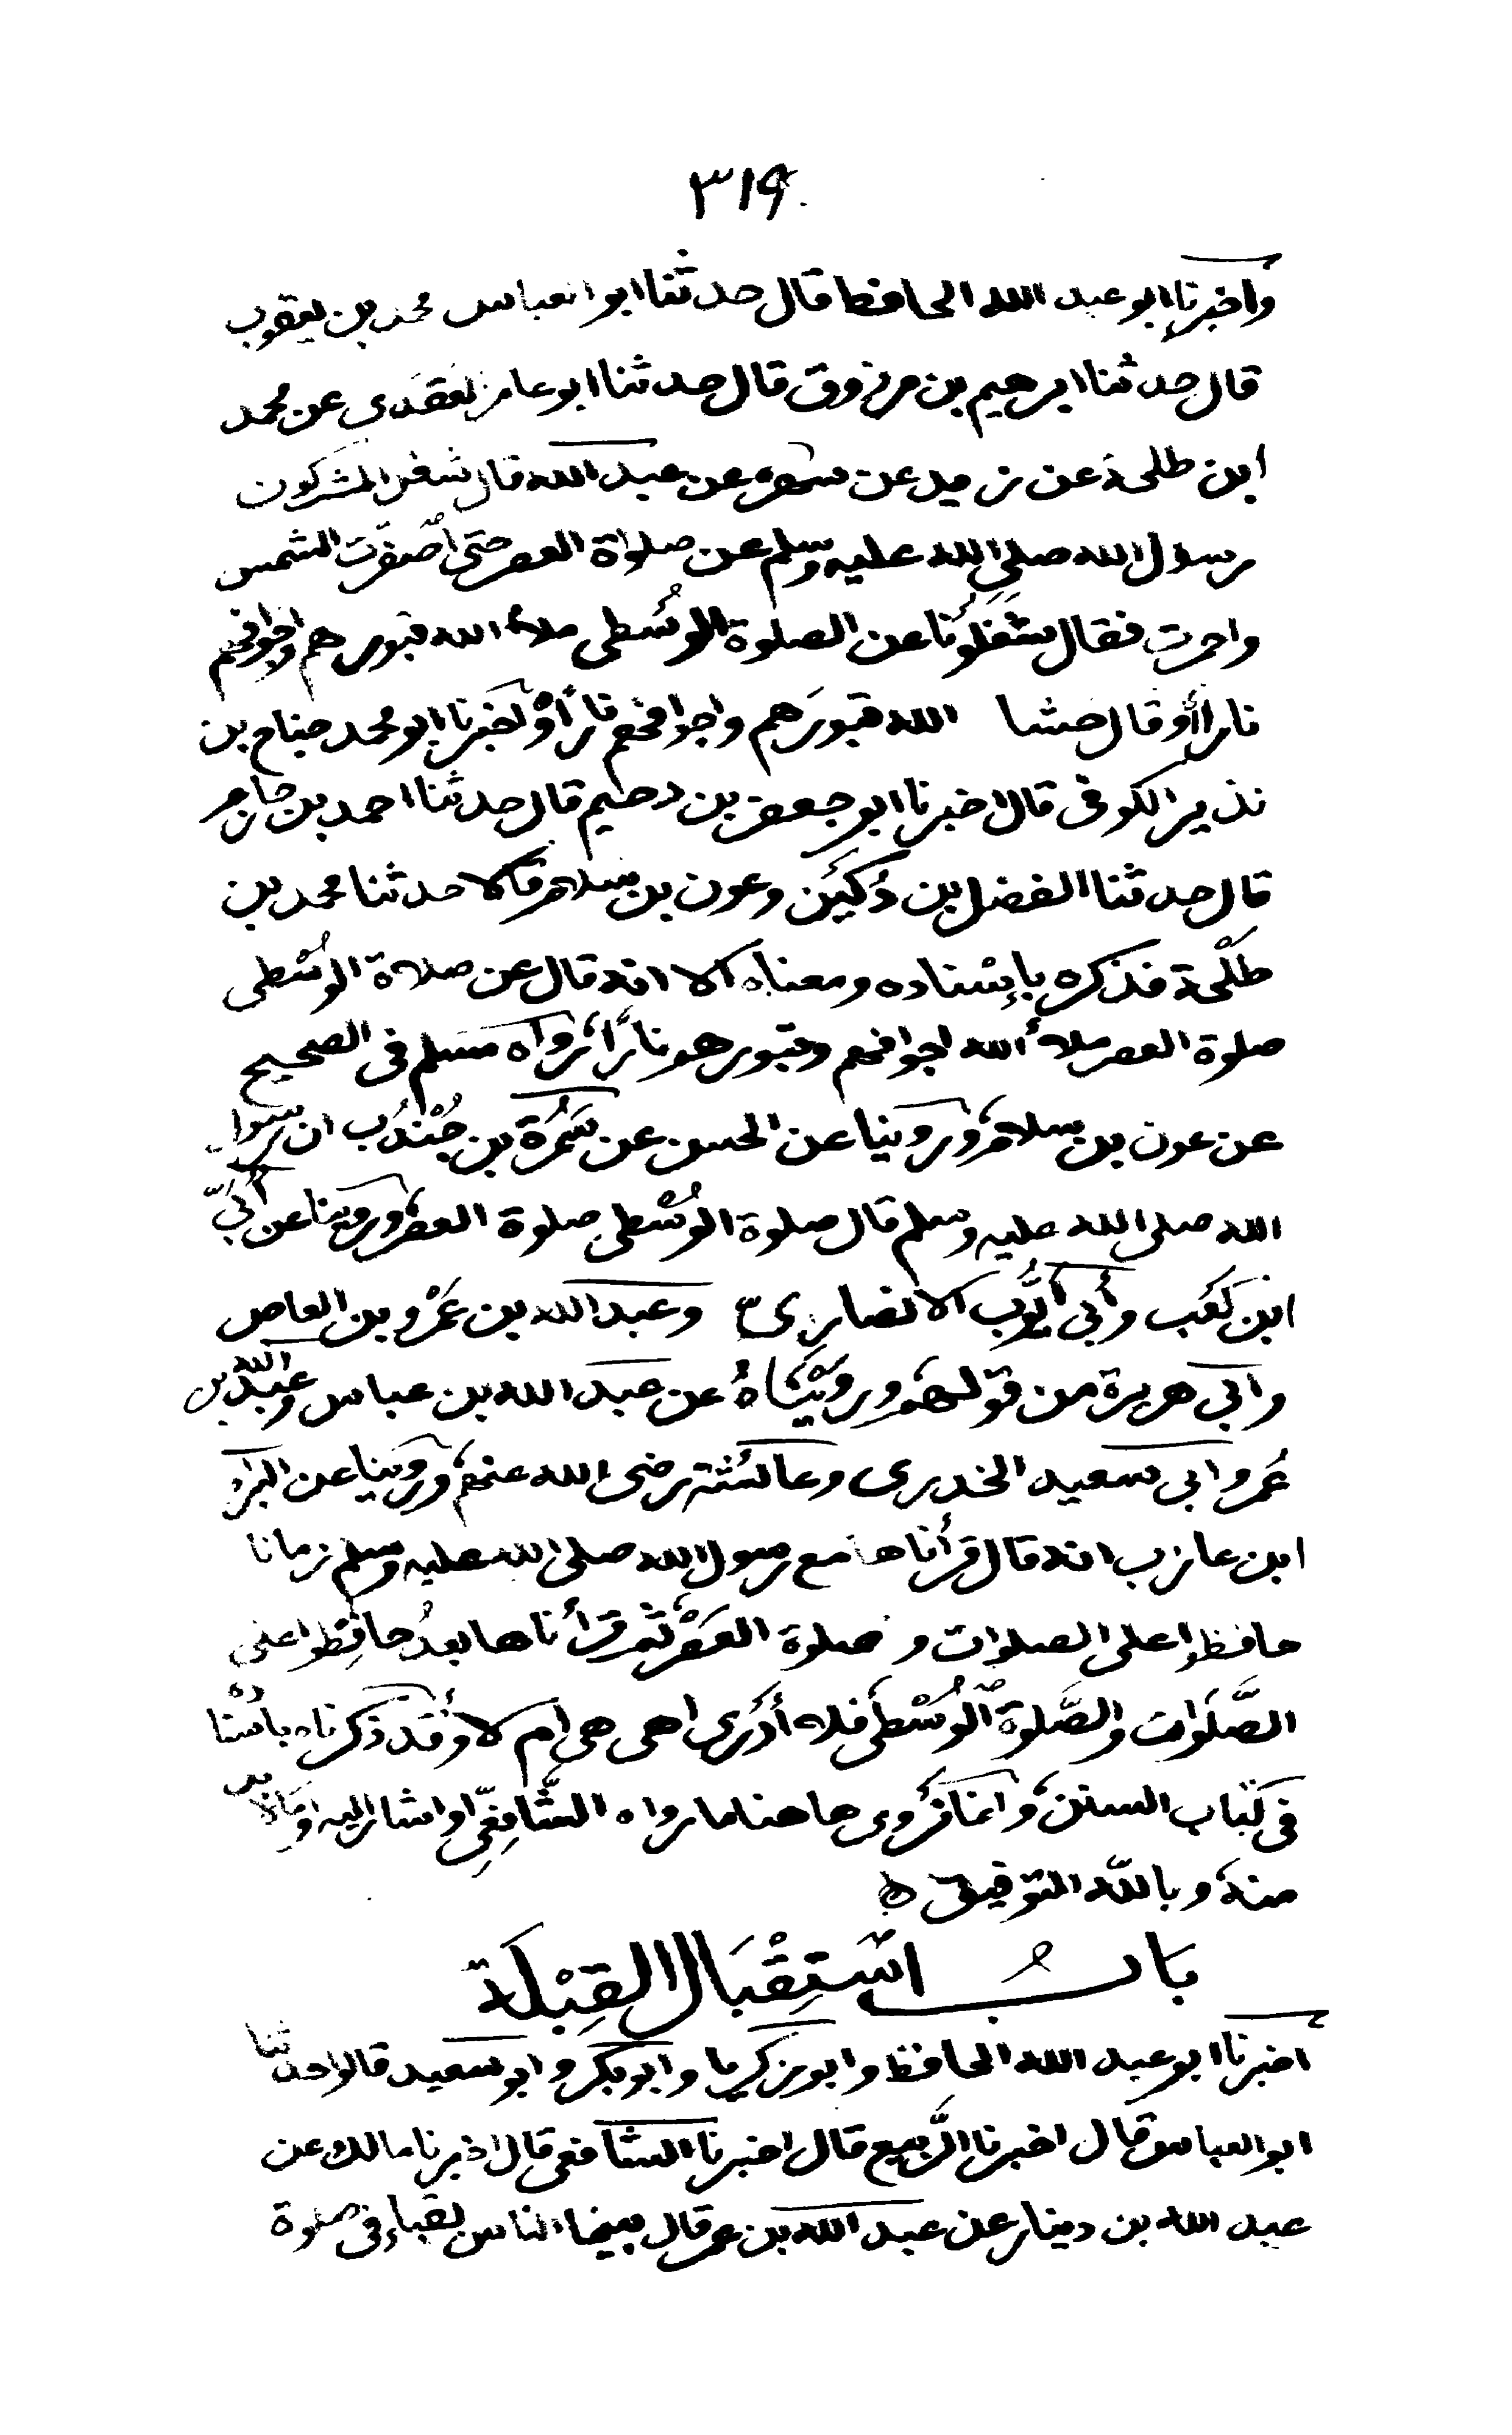 ٣١٩
واخبرنا ابو عبد الله الحافظ قال حدثنا ابو العباس محمد بن يعقوب
قال حدثنا ابرهيم بن مرزوق قال حدثنا ابو عامر العقدي عن محمد
ابن طلحة عن زبيد عن مرة عن عبد الله قال شغل المشركون
رسول الله صلى الله عليه وسلم عن صلواة العصر حتى اصفرّت الشمس
واحمرت فقال شَغَلُونا عن الصلوة الوُسْطى ملأ الله قبورهم واجوافهم
نارا أو قال حشا الله قبورَهم واجوافهم نارًا وأخبَرنا ابو محمد جناح بن
نذير الكوفى قال اخبرنا ابو جعفر بن دحيم قال حدثنا احمد بن حازم
قال حدثنا الفضل بن دُكَيْن وعون بن سلام قالا حدثنا محمد بن
طَلْحة فذكره بإسْناده ومعناه الا انه قال عن صلاة الوُسْطى
صلوة العصر ملأ الله اجوافهم وقبورهم نارًا، رواه مسلم فى الصحيح
عن عون بن سلام، وروينا عن الحسن عن سَمُرَة بن جُنْدُب ان رسول
الله صلى الله عليه وسلم قال صلوة الوُسْطى صلوة العصر، وروينا عن أُبَيّ
ابن كَعْب وأبى أيُّوب الانصارىّ وعبد الله بن عَمْرو بن العاص
وابى هريرة من قولهم، ورويْناهُ عن عبد الله بن عباس وعَبْد الله بن
عُمر وابى سعيد الخدرى وعائشة رضى الله عنهم، وروينا عن البراء
ابن عازب انه قال قرأناها مع رسول الله صلى الله عليه وسلم زمانا
حافظوا على الصلوات و صلوة العَصْر، ثم قرأناها بعدُ حافِظوا على
الصَّلَوات والصَّلوة الوُسْطَى فلا أدْرِى اهى هى ام لا، وقد ذكرناه باسْناده
فى كتاب السنن، وانما نروى هاهنا ما رواه الشَّافِعِىّ او اشار اليه او مَا لابد
منه، وبالله التوفيق ه
بَابُ اسْتِقْبَال القِبْلَة
اخبرنا ابو عبد الله الحافظ وابو زكريا وابو بكر وابو سعيد قالوا حدثنا
ابو العباس قال اخبرنا الرَّبيع قال اخبرنا الشافعى قال اخبرنا مالك عن
عبد الله بن دينار عن عبد الله بن عمر قال بينما الناس بقُباءٍ فى صلوة